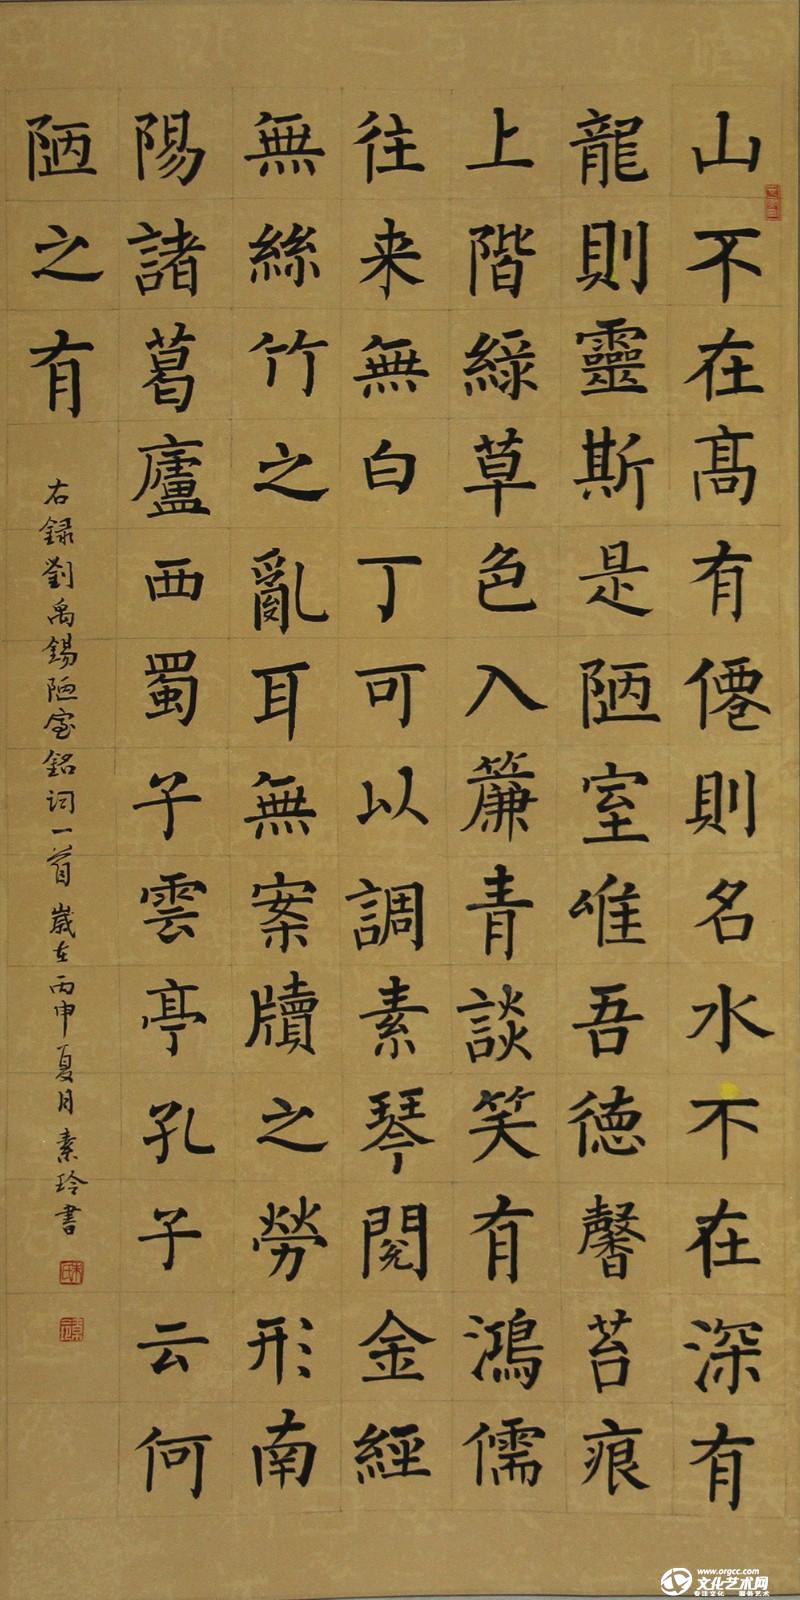 山不在高有僊則名水不在深有
龍則靈斯是陋室唯吾德馨苔痕
上階緑草色入簾青談笑有鴻儒
往来無白丁可以調素琴閱金經
無絲竹之亂耳無案牘之勞形南
陽諸葛廬西蜀子雲亭孔子云何
陋之有
右録劉禹錫陋室銘詞一首歲在丙申夏月素玲書
www.orgcc.com
文化艺术网
专注文化 服务艺术